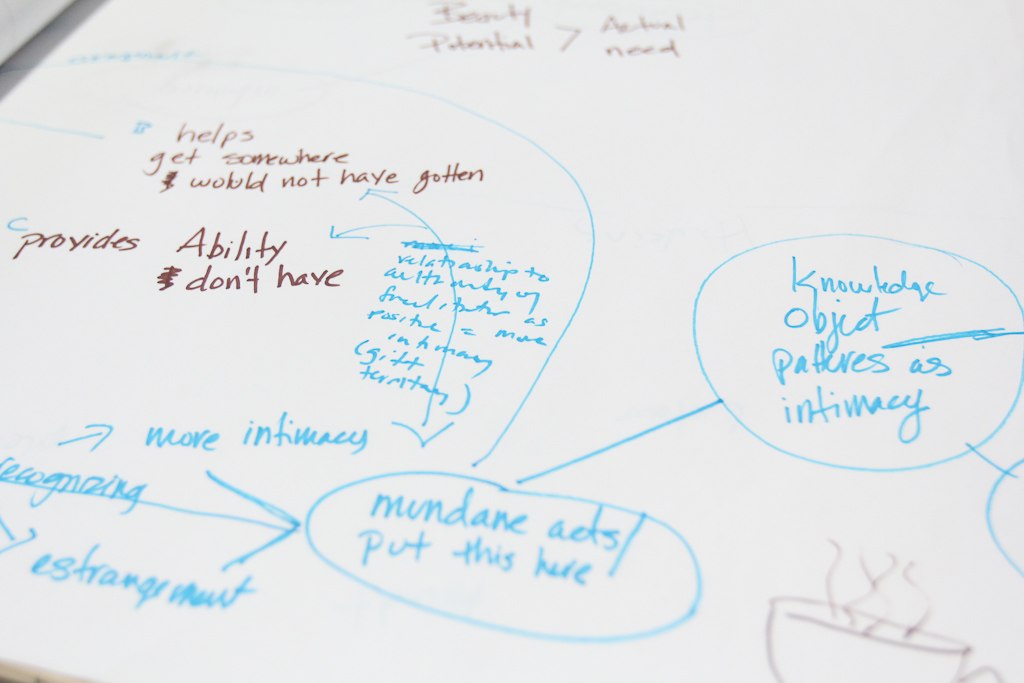 Beauty
Potential > Actual need
B helps
get somewhere
I would not have gotten
C provides Ability
I don't have
relationship to
authority of
facilitator as
positive = more
intimacy
(gift
territory)
Knowledge
Object
patterns as
intimacy
more intimacy
recognizing
estrangement
mundane acts/
put this here